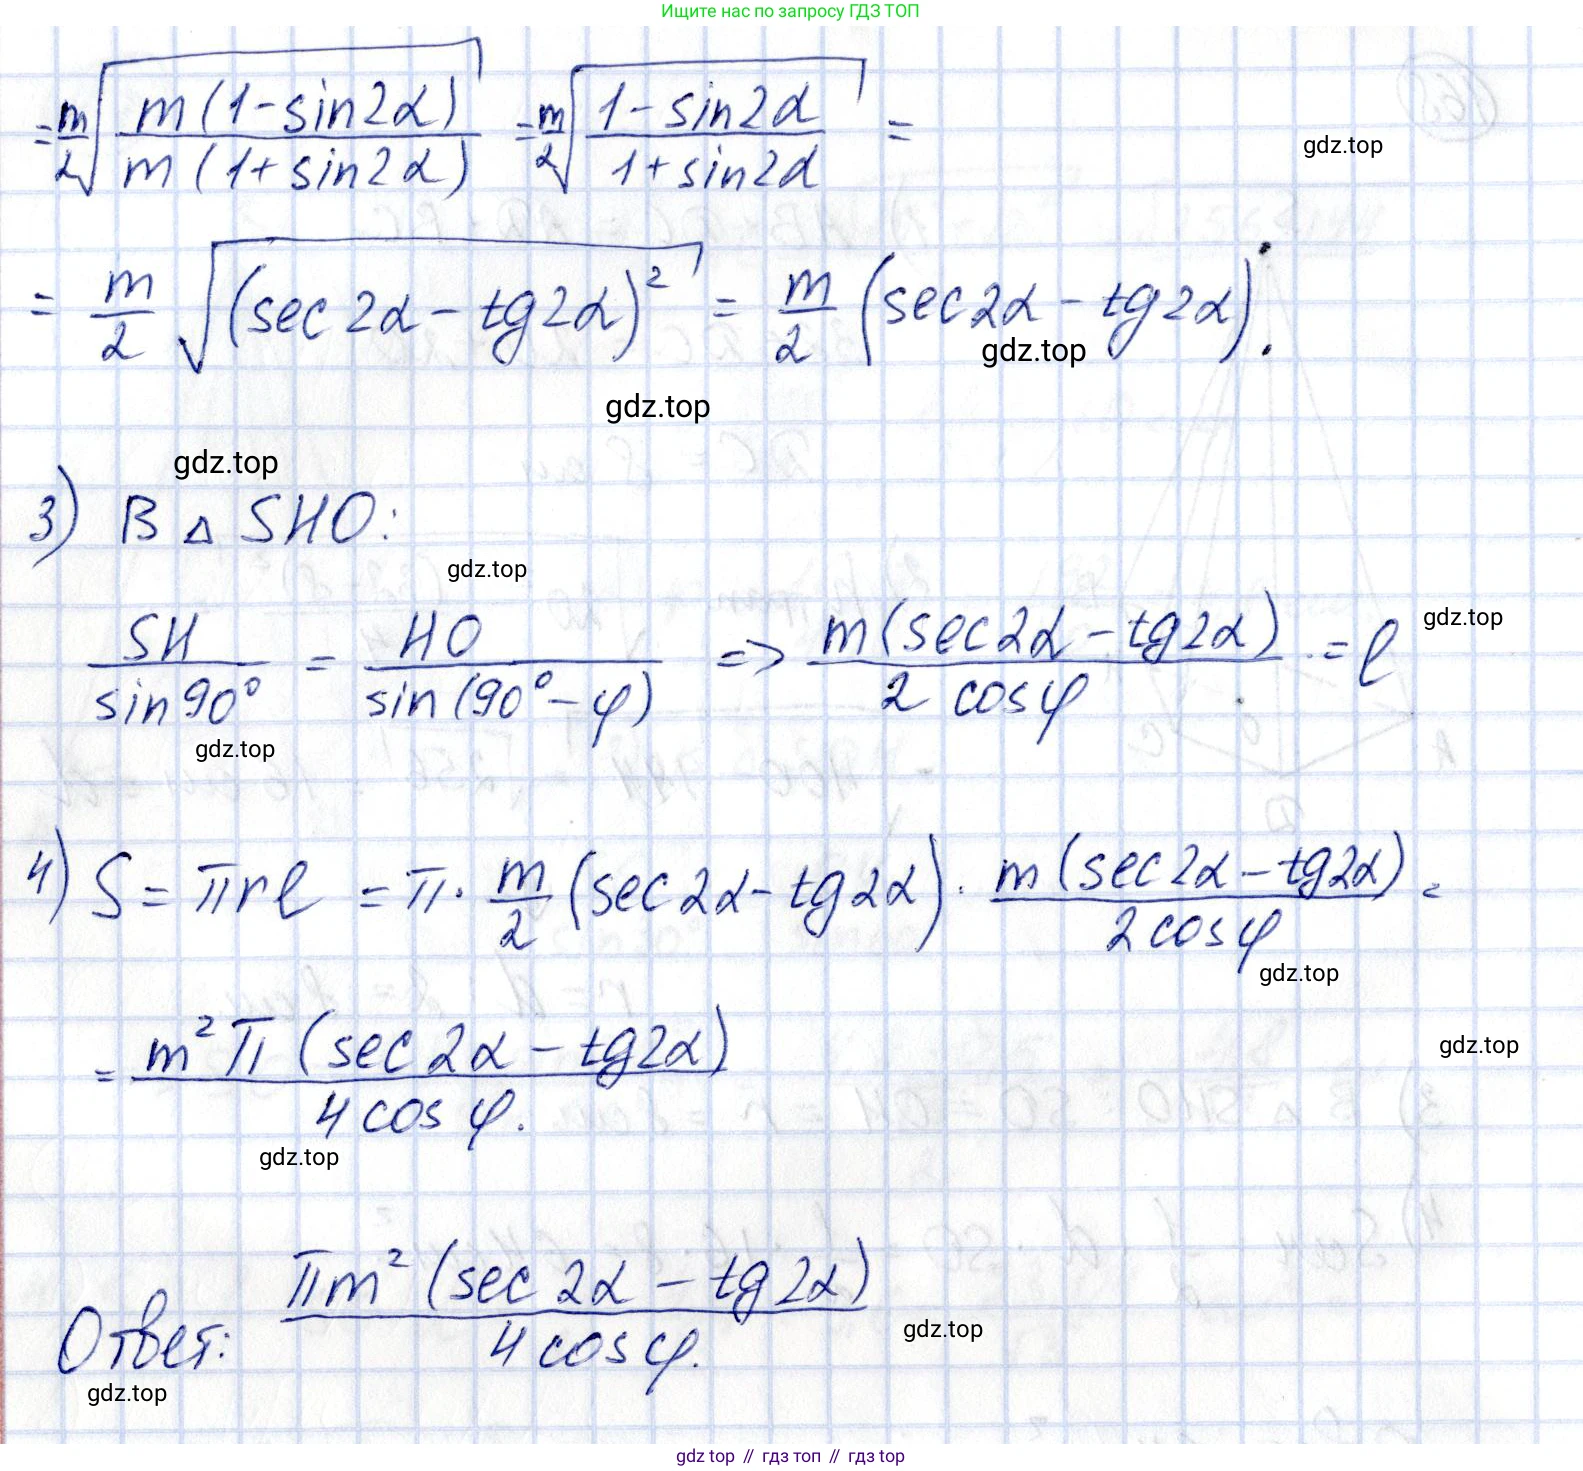 Ищите нас по запросу ГДЗ ТОП
= m/2 √(m(1-sin2α) / m(1+sin2α)) = m/2 √((1-sin2α) / (1+sin2α)) =
gdz.top
= m/2 √((sec2α - tg2α)²) = m/2 (sec2α - tg2α).
gdz.top
gdz.top
gdz.top
3) В △ SHO:
gdz.top
SH / sin90° = HO / sin(90°-φ) => m(sec2α - tg2α) / 2 cosφ = l
gdz.top
gdz.top
4) S = πrl = π · m/2 (sec2α - tg2α) · m(sec2α - tg2α) / 2cosφ =
gdz.top
= m²π (sec2α - tg2α) / 4cosφ.
gdz.top
gdz.top
Ответ: πm² (sec2α - tg2α) / 4cosφ.
gdz.top
gdz.top
gdz top // гдз топ // gdz top